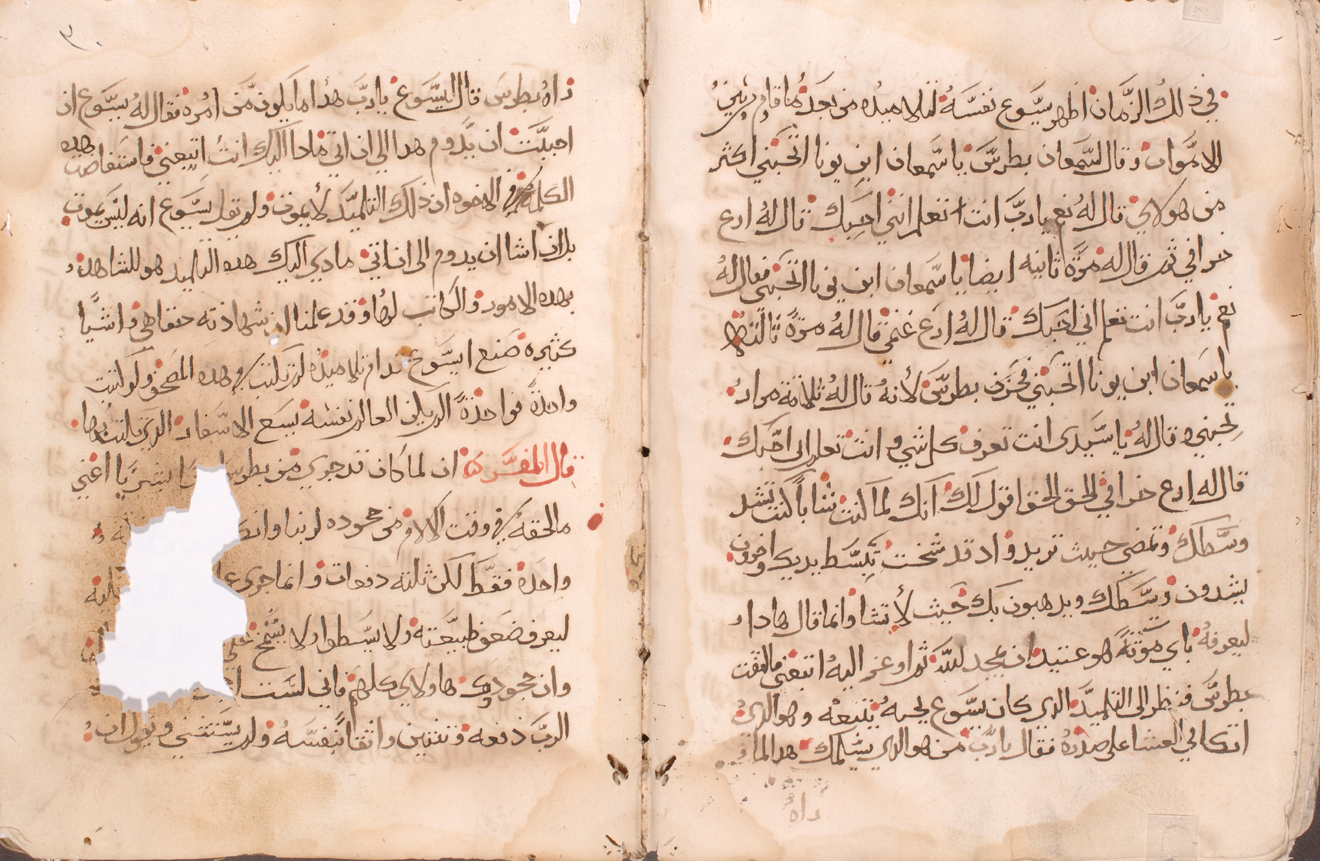 في ذلك الزمان اظهر يسوع نفسه لتلاميذه من بعد ما قام من بين
الاموات وقال لسمعان بطرس يا سمعان ابن يونا اتحبني اكثر
من هولاي قال له نعم يا رب انت تعلم انني احبك قال له ارع
خرافي ثم قال له مرة ثانيه ايضا يا سمعان ابن يونا اتحبني فقال له
نعم يا رب انت تعلم اني احبك قال له ارع غنمي قال له مرة ثالثه
يا سمعان ابن يونا اتحبني فحزن بطرس لأنه قال له ثلاثة مرار
تحبني وقال له يا سيدي انت تعرف كل شي وانت تعلم اني احبك
قال له ارع خرافي الحق الحق اقول لك انك لما كنت شاباً كنت تشد
وسطك وتمضي حيث تريد واذ قد شخت تبسط يديك واخرون
يشدون وسطك ويذهبون بك حيث لا تشا وانما قال هادا
ليعرفه باي موتة هو عتيد ان يمجد لله ثم اوعز اليه اتبعني فالتفت
بطرس فنظر الى التلميذ الذي كان يسوع يحبه يتبعه وهو الذي
اتكا في العشا على صدره فقال يا رب من هو الذي يسلمك هدا لما
راه
راه بطرس قال ليسوع يا رب هدا ما يكون من امره فقال له يسوع ان
احببت ان يدوم هدا الى ان اتي مادا اليك انت اتبعني فاستفاضت هده
الكلمة في الاخوه ان ذلك التلميذ لا يموت ولم يقل يسوع انه ليس يموت
بل ان اشا ان يدوم الى ان اتي مادي اليك هده التلميد هو للشاهد
بهده الامور والكاتب لها وقد علمنا ان شهادته حقا هي واشيا
كثيره صنع ايسوع قدام تلاميذه لم تكتب في هده المصحف ولو كتبت
واحدة فواحدة لم يكن العالم نفسه يسع الاسفار الذي كتبت بها
قال المفسر ان لما كان قد جري من بطرس بشريا اعني
مالحقه في وقت الالام من جحوده لربنا
واحدة فقط لكن ثلثه دفعات وانما جرى
ليعرف ضعف طبيعته ولا يسطوا ولا يشمخ على
وان جحودك هاولاي كلهم فاني لست
الرب دفعه وثنتين واثقاً بنفسه ولم يستثني ويقول ان